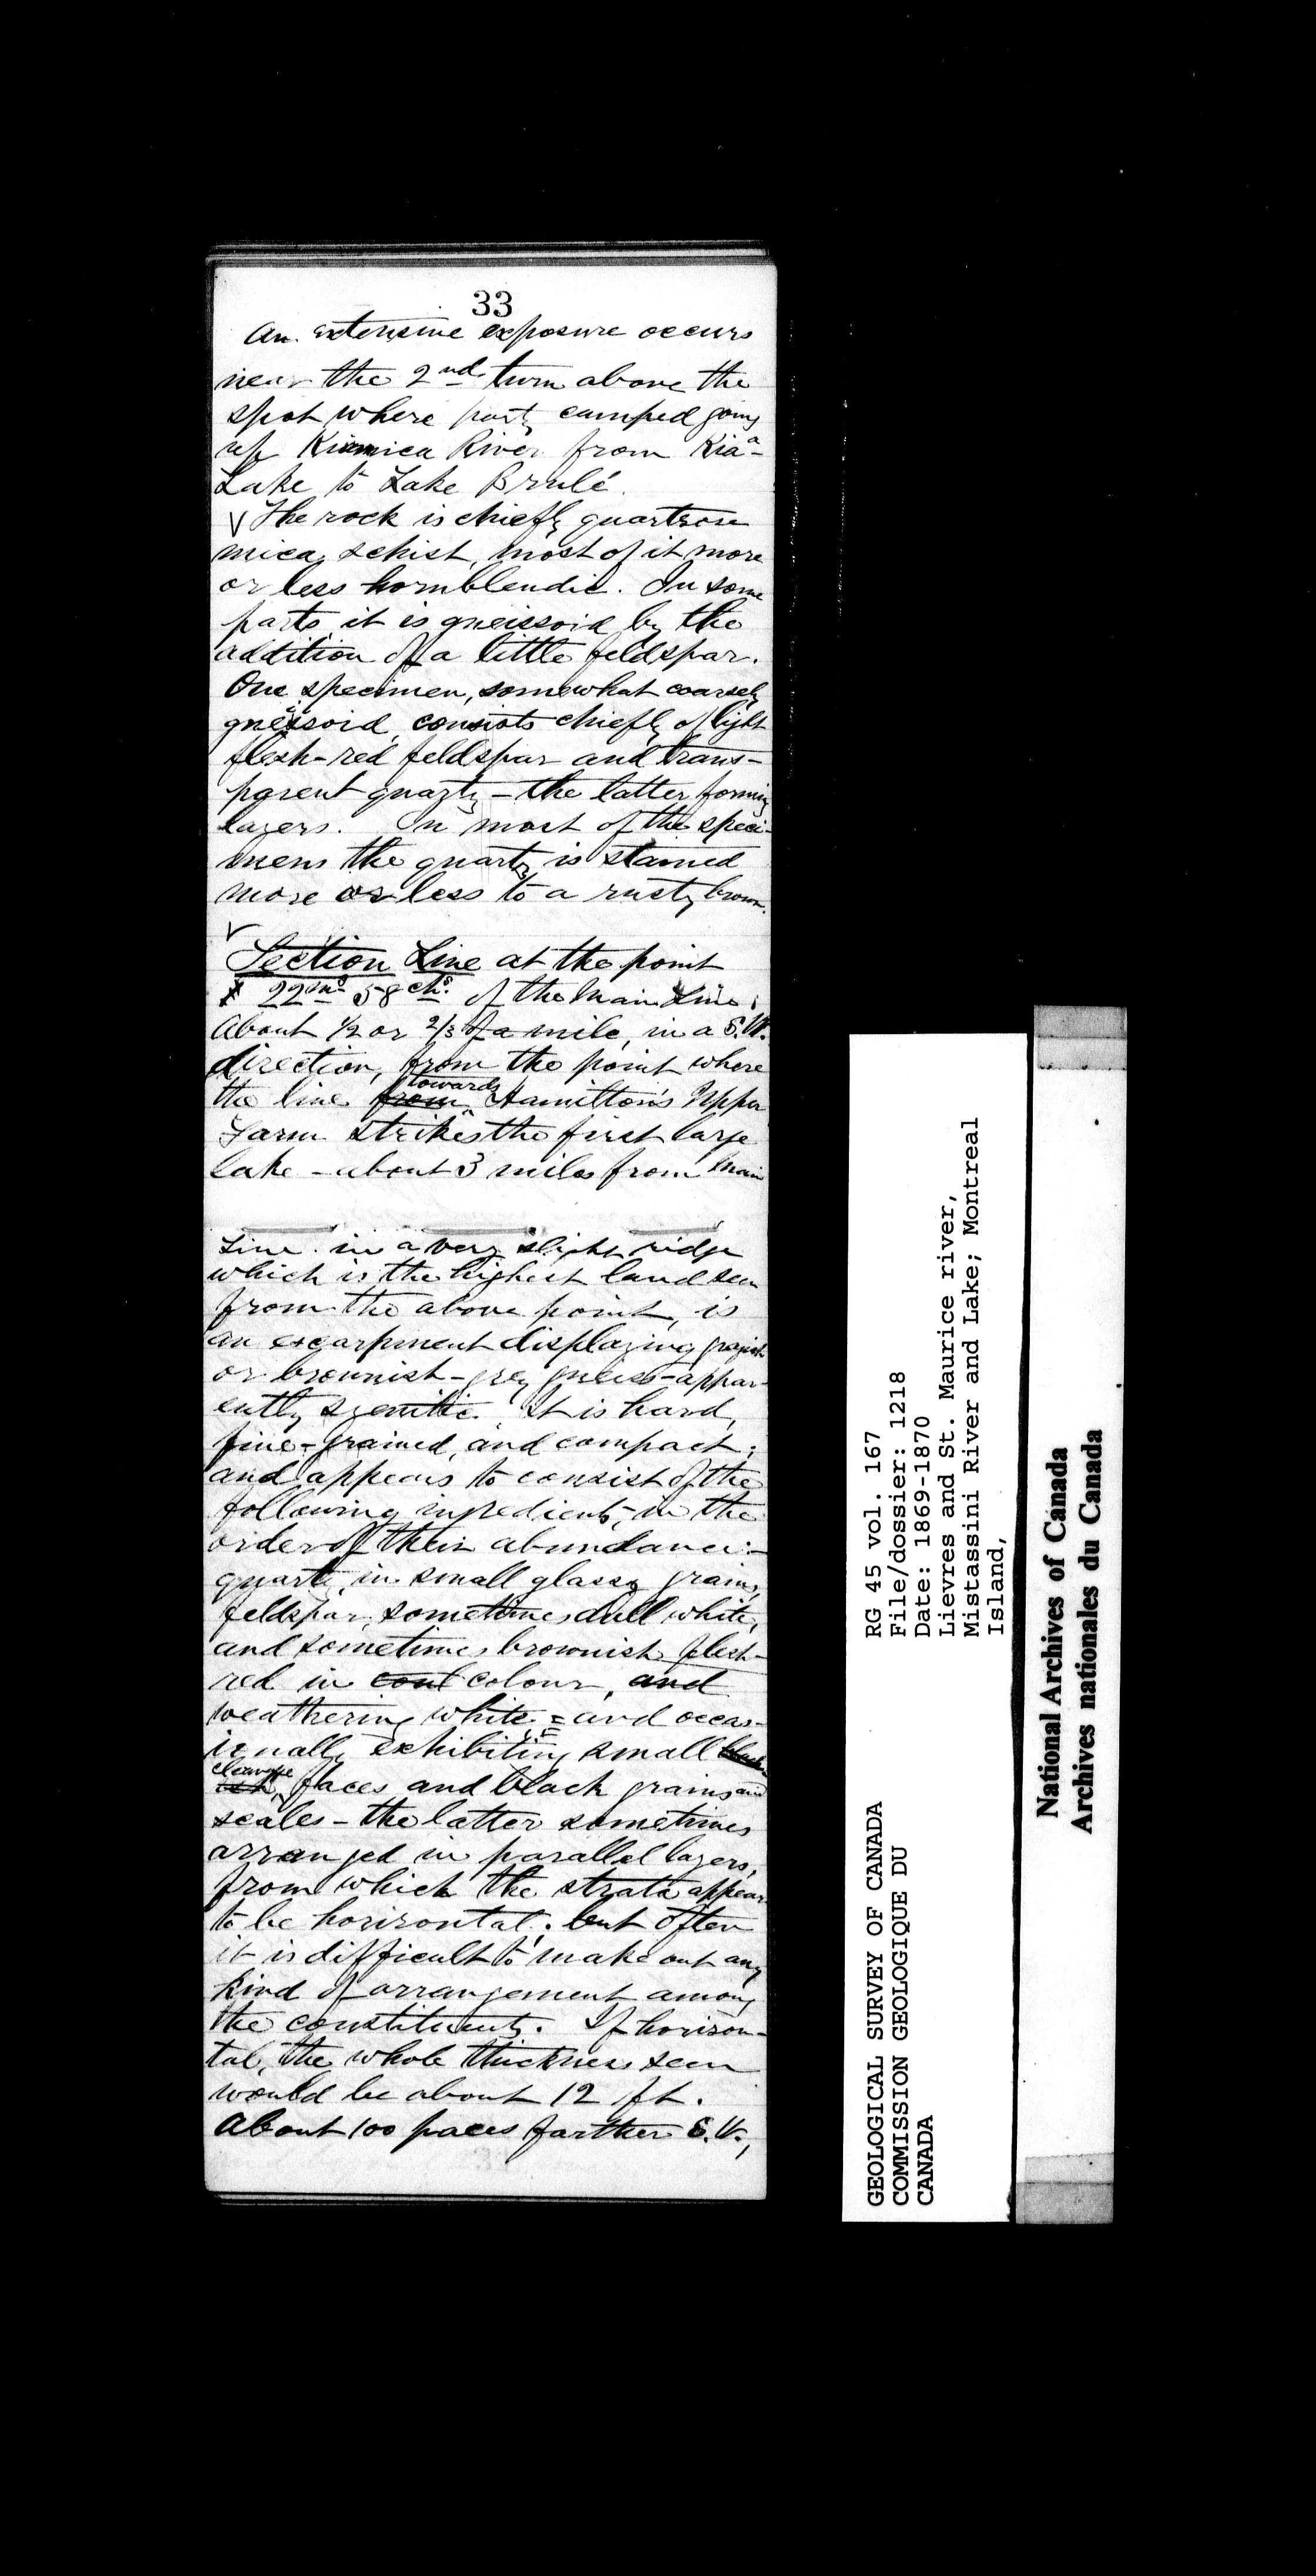 33
An extensive exposure occurs
near the 2nd turn above the
spot where party camped going
up Kiamica River from Kiaa-
Lake to Lake Brulé.
V The rock is chiefly quartzose
mica schist, most of it more
or less hornblendic. In some
parts it is gneissoid by the
addition of a little feldspar.
One specimen, somewhat coarsely
gneissoid, consists chiefly of light
flesh-red feldspar and trans-
parent quartz - the latter forming
layers. In most of the speci-
mens the quartz is stained
more or less to a rusty brown.
Section Line at the point
22 ms 58 chs of the Main Line,
About 1/2 or 2/3 of a mile, in a S.W.
direction, from the point where
the line from towards Hamilton's Upper
Farm strikes the first large
lake - about 3 miles from Main
Line in a very slight ridge
which is the highest land seen
from the above point, is
an escarpment displaying grayish
or brownish-grey gneiss - appar-
ently syenitic. It is hard,
fine-grained, and compact;
and appears to consist of the
following ingredients, in the
order of their abundance:-
quartz, in small glassy grains,
feldspar, sometimes dull white,
and sometimes brownish flesh-
red in coul colour, and
weathering white = and occas-
ionally exhibiting small
cleavage faces and black grains and
scales - the latter sometimes
arranged in parallel layers,
from which the strata appear
to be horizontal; but often
it is difficult to make out any
kind of arrangement among
the constituents. If horizon-
tal, the whole thickness seen
would be about 12 ft.
About 100 paces farther S.W.,
GEOLOGICAL SURVEY OF CANADA
COMMISSION GEOLOGIQUE DU
CANADA
RG 45 vol. 167
File/dossier: 1218
Date: 1869-1870
Lievres and St. Maurice river,
Mistassini River and Lake; Montreal
Island,
National Archives of Canada
Archives nationales du Canada